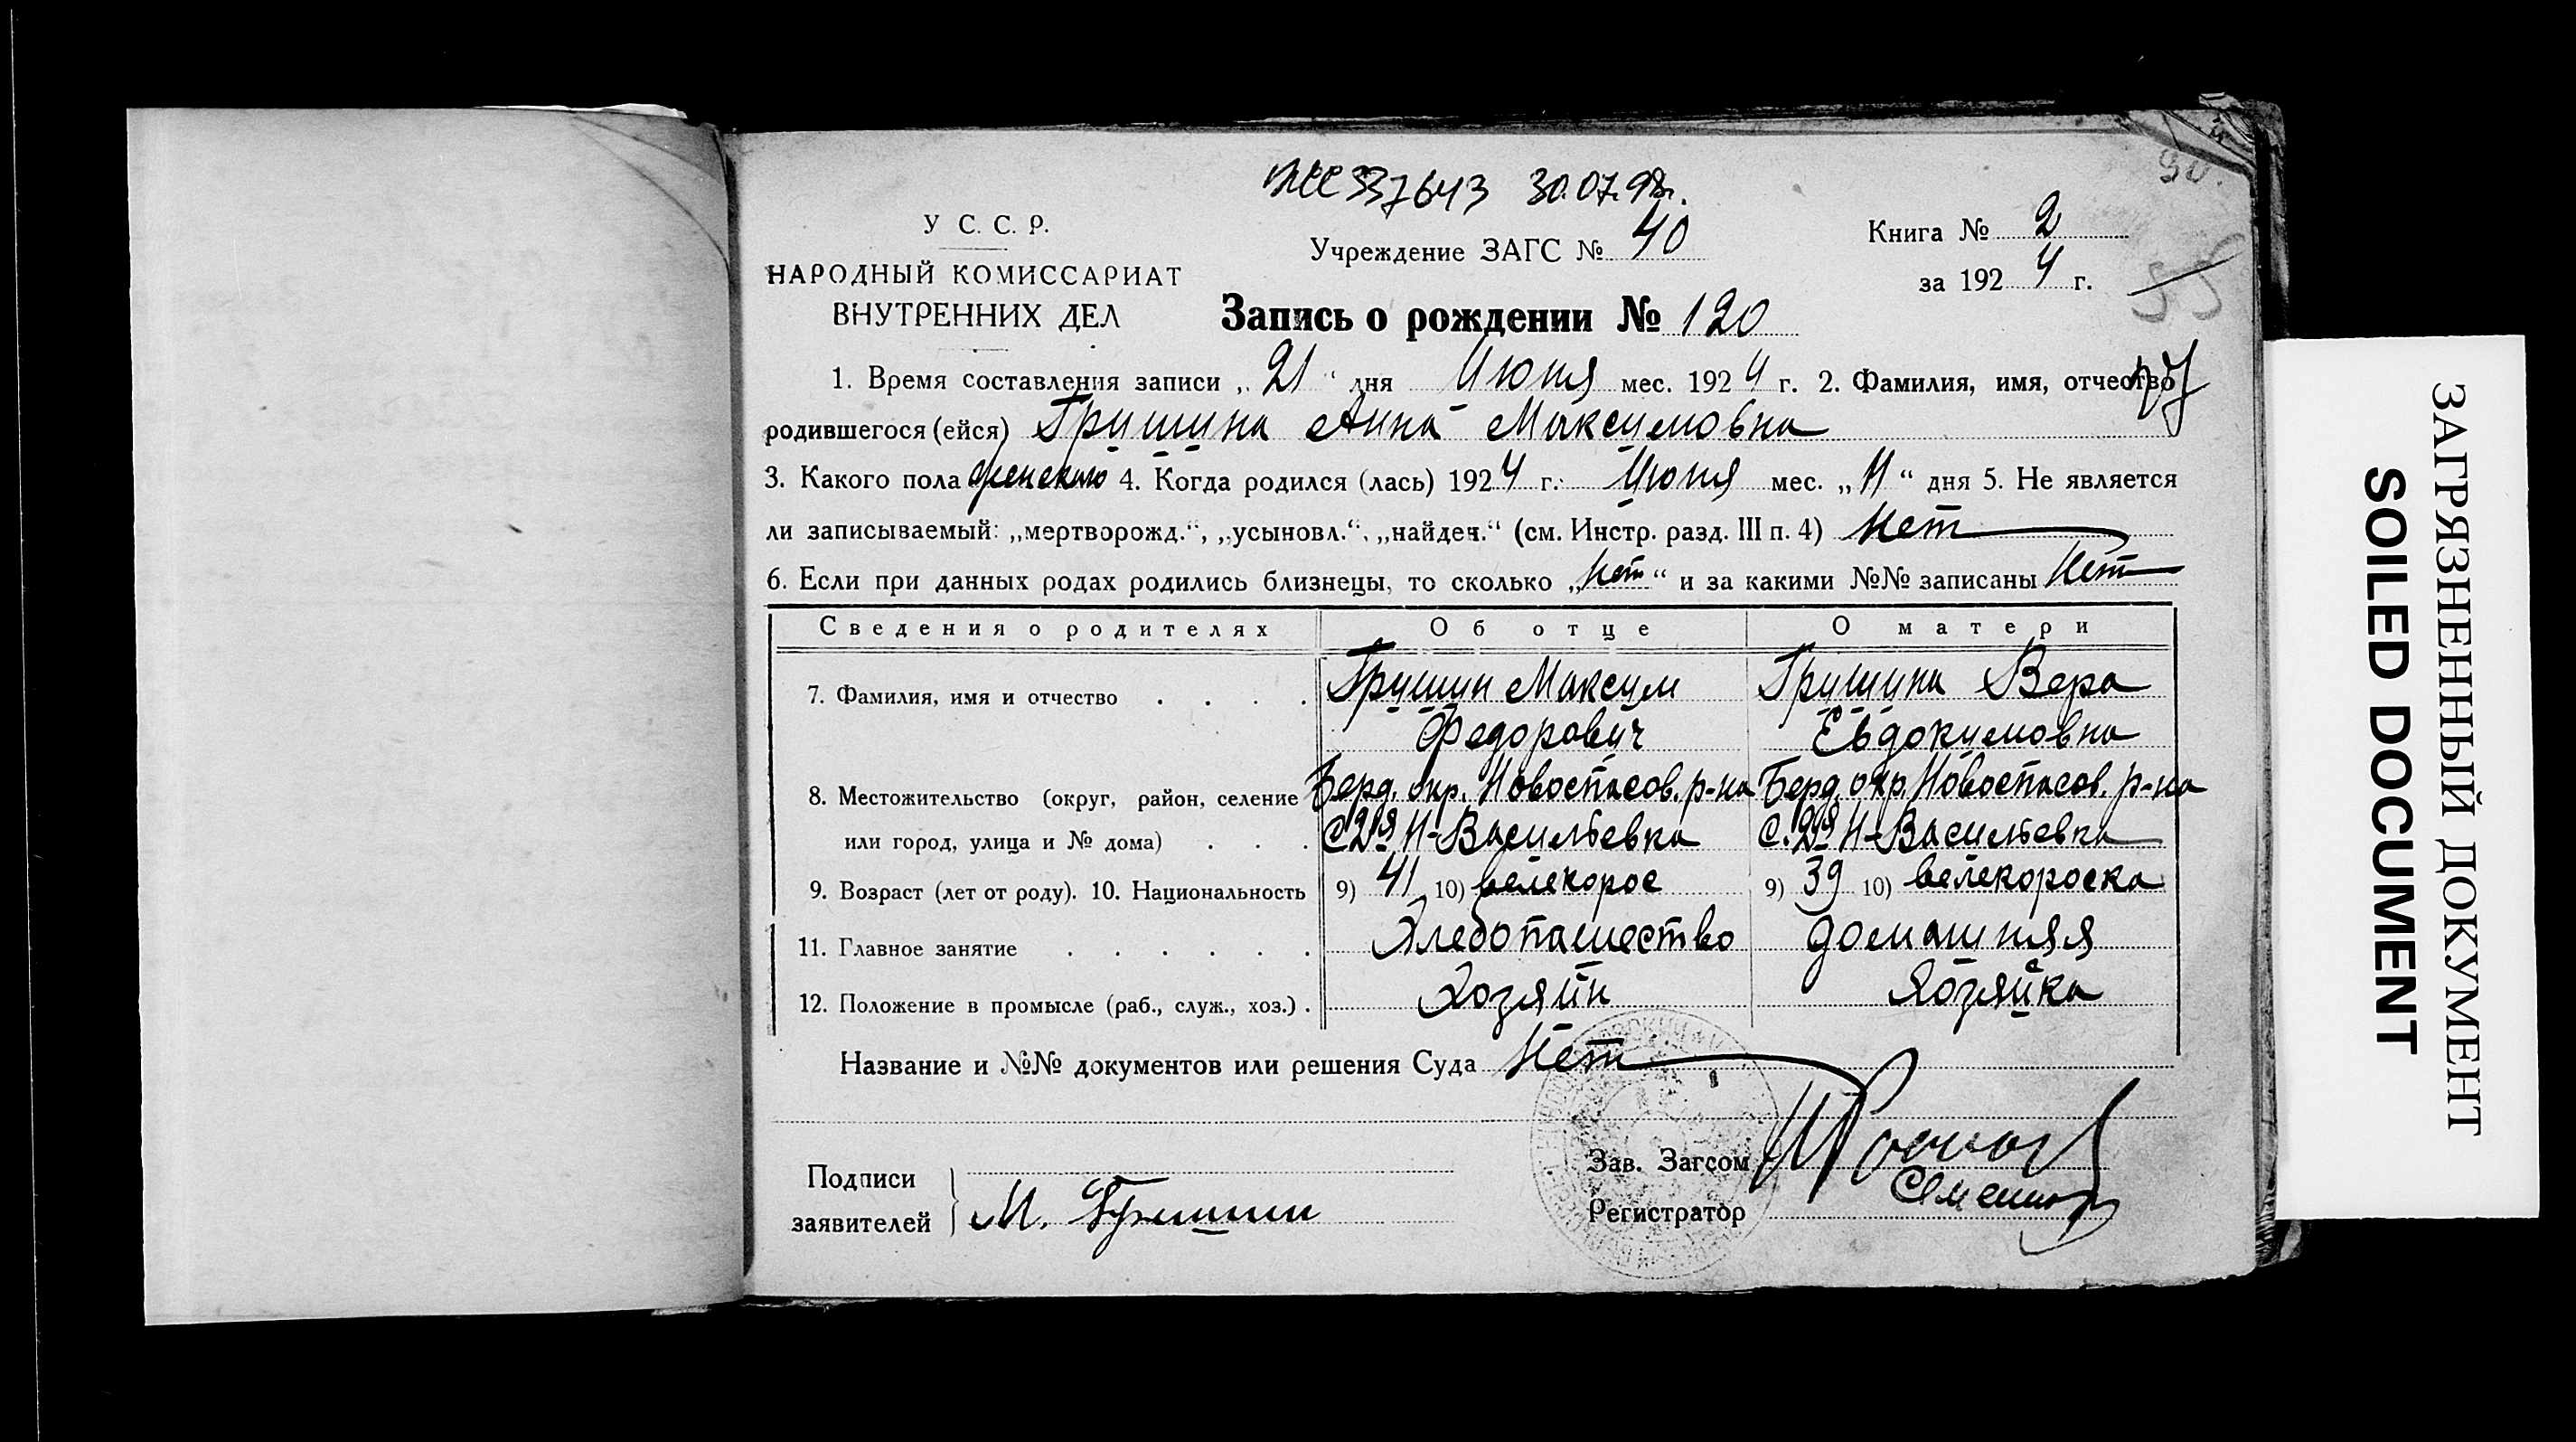 30.07.98г.
У С. С. Р.
НАРОДНЫЙ КОМИССАРИАТ
ВНУТРЕННИХ ДЕЛ
Учреждение ЗАГС № 40
Книга № 2
за 1924 г.
Запись о рождении № 120
1. Время составления записи „21“ дня Июня мес. 1924 г. 2. Фамилия, имя, отчество
родившегося (ейся) Гришина Анна Максимовна
3. Какого пола женского 4. Когда родился (лась) 1924 г. Июня мес. „11“ дня 5. Не является
ли записываемый: „мертворожд.“, „усыновл.“, „найден.“ (см. Инстр. разд. III п. 4) Нет
6. Если при данных родах родились близнецы, то сколько „Нет“ и за какими №№ записаны Нет
Сведения о родителях Об отце О матери
7. Фамилия, имя и отчество . . . . Гришин Максим Гришина Вера
Федорович Евдокимовна
8. Местожительство (округ, район, селение Берд. окр. Новоспасов. р-на Берд. окр. Новоспасов. р-на
или город, улица и № дома) . . . С 2ая Н-Васильевка С. 2ая Н-Васильевка
9. Возраст (лет от роду). 10. Национальность 9) 41 10) велекорос 9) 39 10) велекороска
11. Главное занятие . . . . . . Хлебопашество домашняя
12. Положение в промысле (раб., служ., хоз.) . Хозяин Хозяйка
Название и №№ документов или решения Суда Нет
Подписи
заявителей М. Гришин
Зав. Загсом
Регистратор
ЗАГРЯЗНЕННЫЙ ДОКУМЕНТ
SOILED DOCUMENT